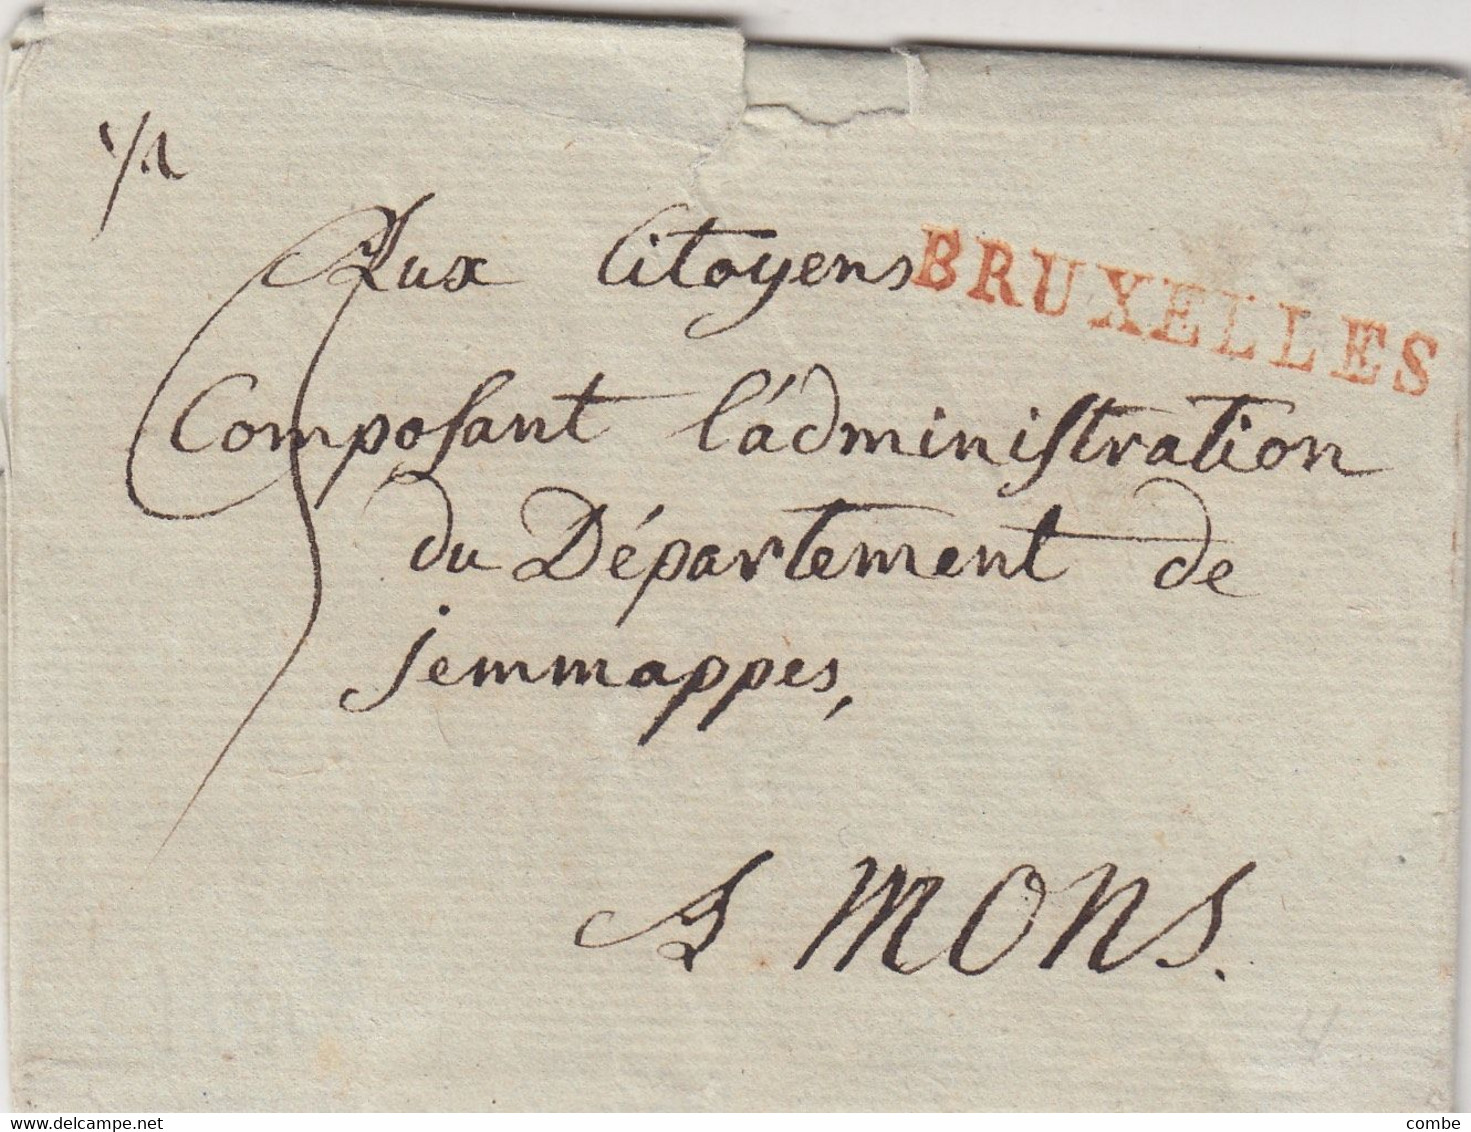 Aux Citoyens
BRUXELLES
Composant l'administration
du Département de
jemmappes,
A MONS.
delcampe.net
combe